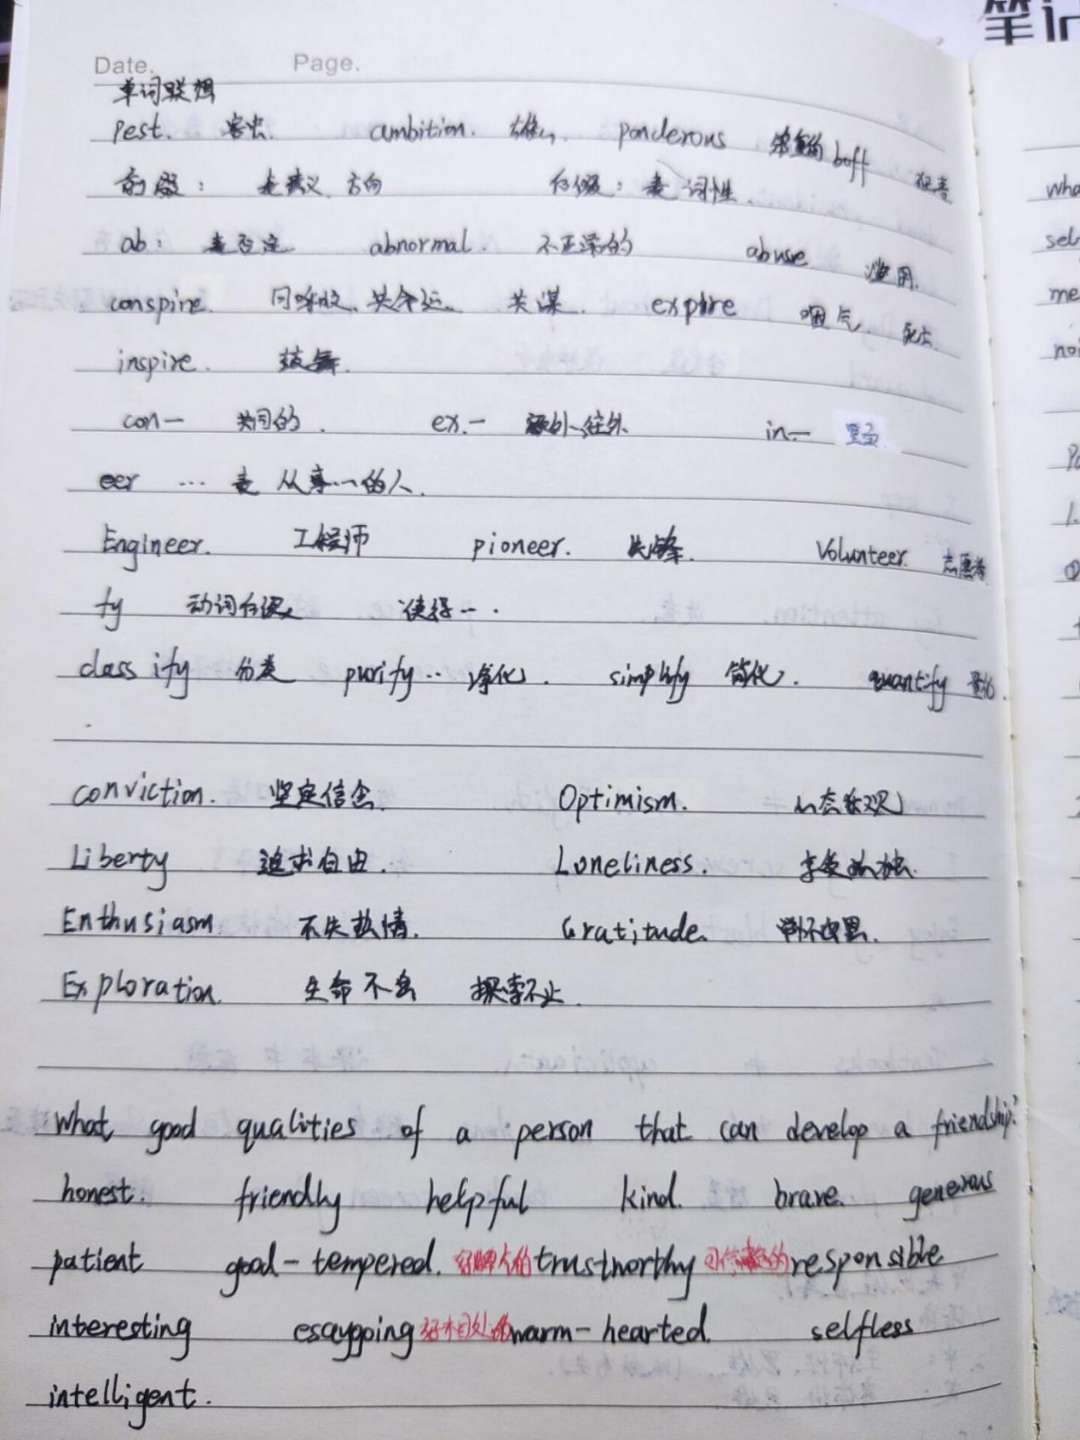 笔记
Date. Page.
单词联想
Pest. 害虫. ambition. 雄心 ponderous 笨重的 boff
前缀: 表意义 方向 后缀: 表词性
ab: 表否定 abnormal. 不正常的 abuse 滥用.
conspire. 同呼吸、共命运. 共谋. expire 咽气. 死亡.
inspire. 鼓舞.
con— 共同的. ex.— 额外、往外 in— 里面
eer … 表 从事…的人.
Engineer. 工程师 pioneer. 先锋. Volunteer. 志愿者
fy 动词后缀 使得….
classify 分类 purify… 净化. simplify 简化. quantify 量化.
conviction. 坚定信念 Optimism. 心态乐观
Liberty 追求自由. Loneliness. 享受孤独.
Enthusiasm 不失热情. Gratitude.
Exploration. 生命不息 探索不止.
what good qualities of a person that can develop a friendship?
honest. friendly helpful kind. brave. generous
patient good-tempered. 好脾气的 trustworthy 可信赖的 responsible
interesting esaygoing 好相处的 warm-hearted. selfless
intelligent.